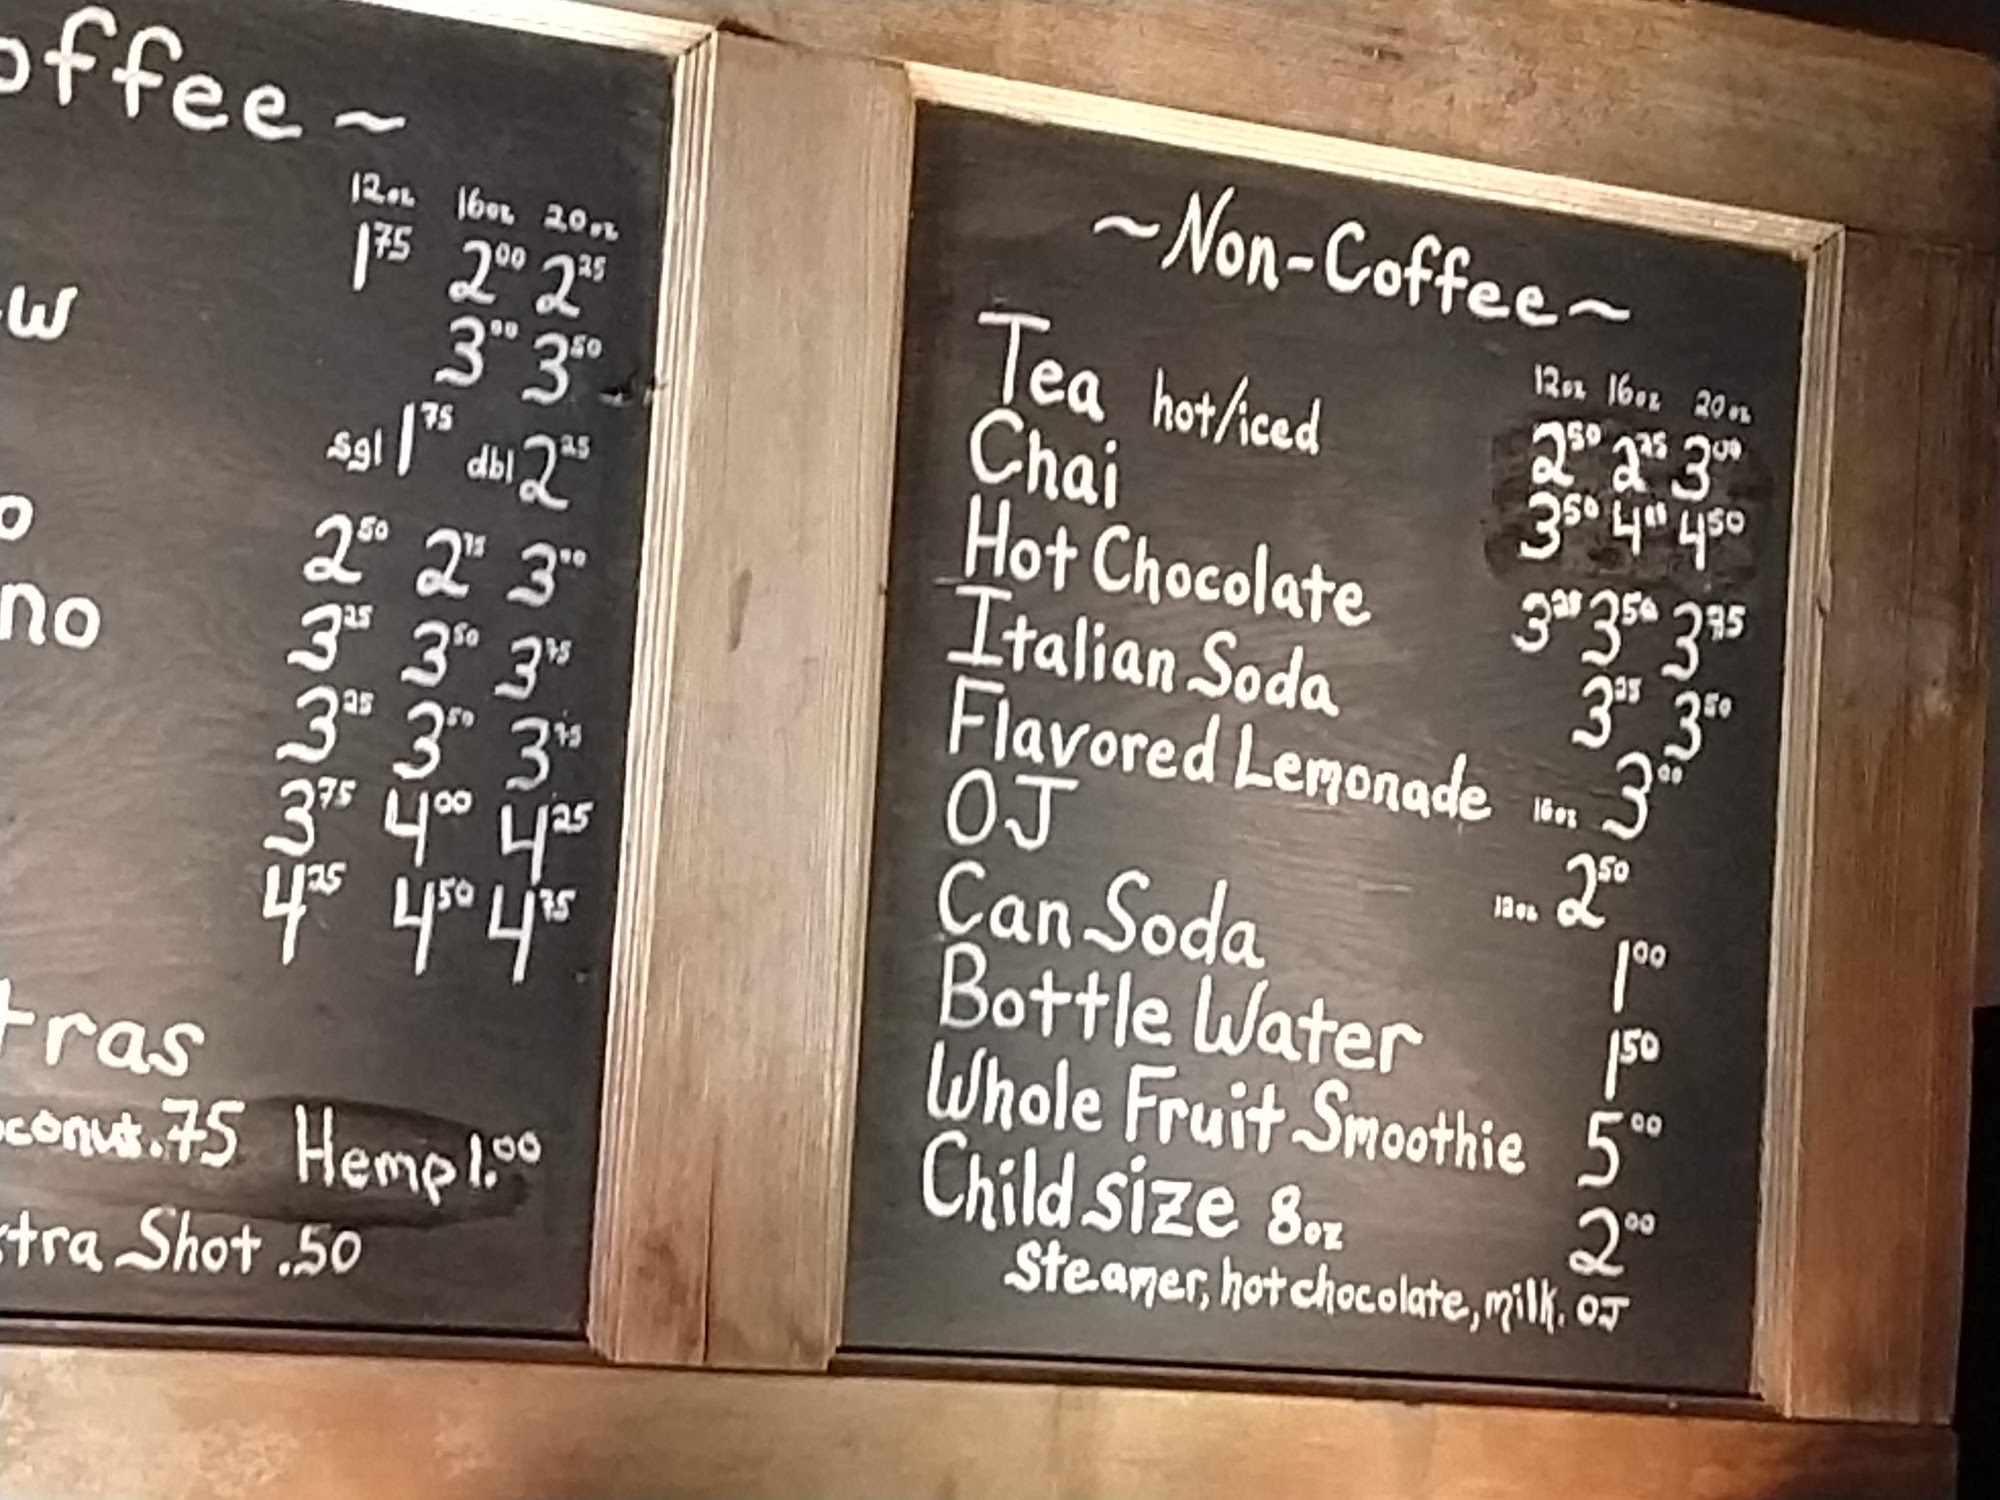 offee ~
12oz 16oz 20oz
1.75 2.00 2.25
w 3.00 3.50
sgl 1.75 dbl 2.25
o 2.50 2.75 3.00
no 3.25 3.50 3.75
3.25 3.50 3.75
3.75 4.00 4.25
4.25 4.50 4.75
tras
oconut .75 Hemp 1.00
xtra Shot .50
~Non-Coffee~
12oz 16oz 20oz
Tea hot/iced 2.50 2.75 3.00
Chai 3.50 4.00 4.50
Hot Chocolate 3.25 3.50 3.75
Italian Soda 3.25 3.50
Flavored Lemonade 16oz 3.00
OJ 12oz 2.50
Can Soda 1.00
Bottle Water 1.50
Whole Fruit Smoothie 5.00
Child size 8oz 2.00
Steamer, hot chocolate, milk. OJ